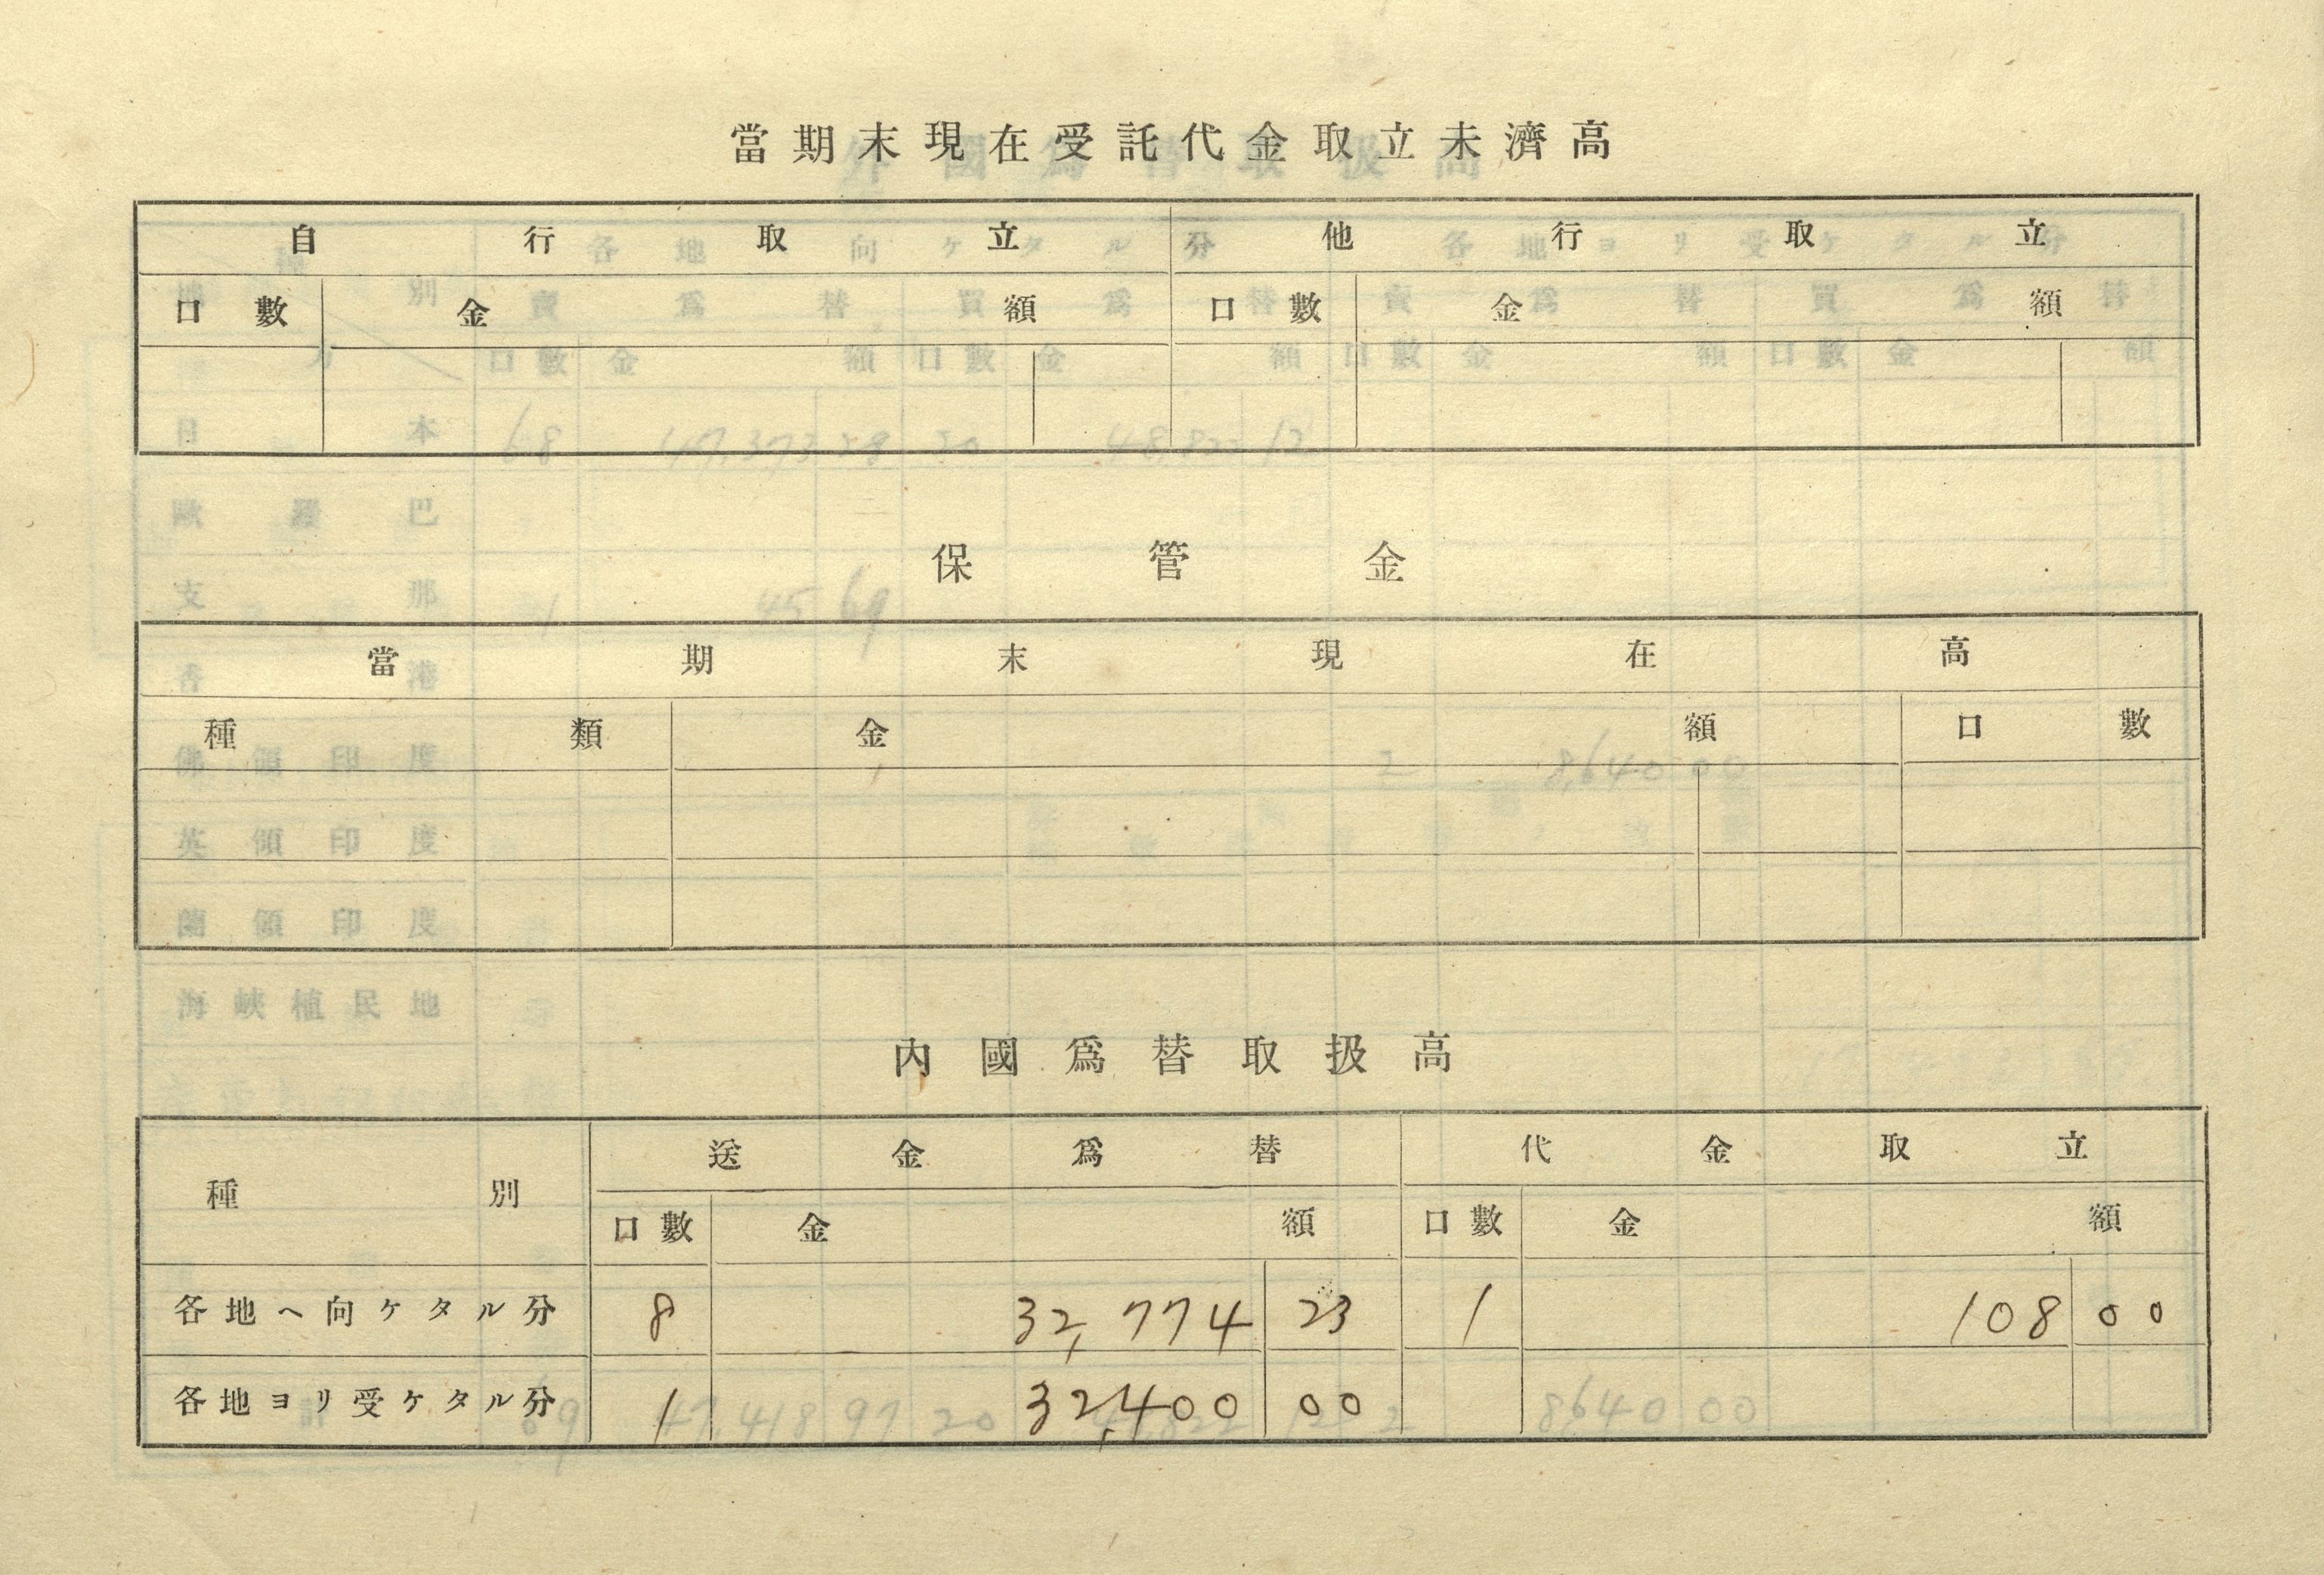 當期末現在受託代金取立未濟高
自行取立 他行取立
口數 金額 口數 金額
保管金
當期末現在高
種類 金額 口數
內國爲替取扱高
種別 送金爲替 代金取立
口數 金額 口數 金額
各地ヘ向ケタル分 8 32,774 23 1 108 00
各地ヨリ受ケタル分 1 32,400 00